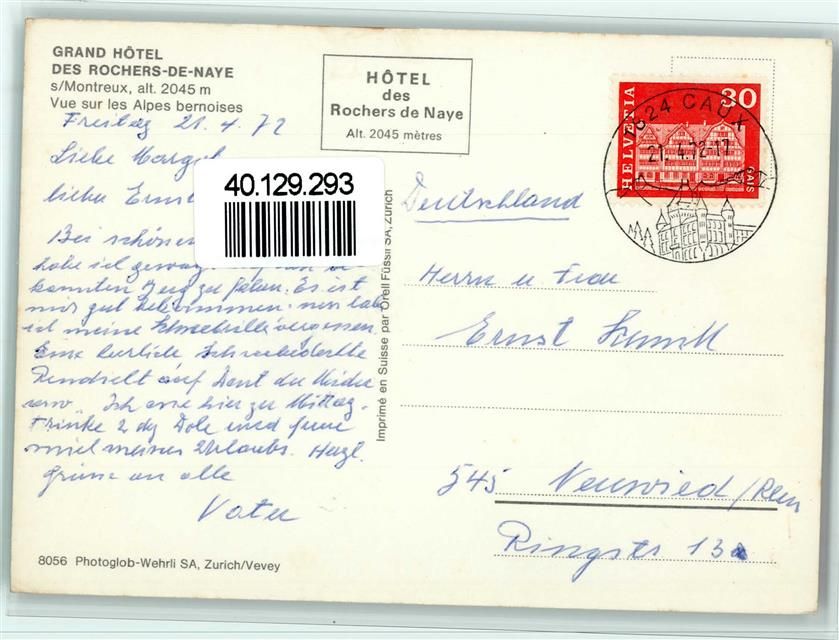 GRAND HÔTEL
DES ROCHERS-DE-NAYE
s/Montreux, alt. 2045 m
Vue sur les Alpes bernoises
HÔTEL
des
Rochers de Naye
Alt. 2045 mètres
Freitag 21.4.72
Liebe Margot
lieber Ernst
40.129.293
Bei schönem
habe ich
kannten Zug zu fahren. Es ist
mir gut bekommen. nur habe
ich meine Schneebrille vergessen
Eine herrliche Schneedecke
Rundsicht auf Dent du Midi
usw. Ich esse hier zu Mittag.
Trinke 2 dg Dole und freue
mich meines Urlaubs. Herzl.
Grüsse an alle
Vater
8056 Photoglob-Wehrli SA, Zurich/Vevey
Imprimé en Suisse par Orell Füssli SA, Zurich
HELVETIA
30
GAIS
1824 CAUX
21.4.72-17
Deutschland
Herrn u Frau
Ernst
545 Neuwied/Rein
Ringstr 13a